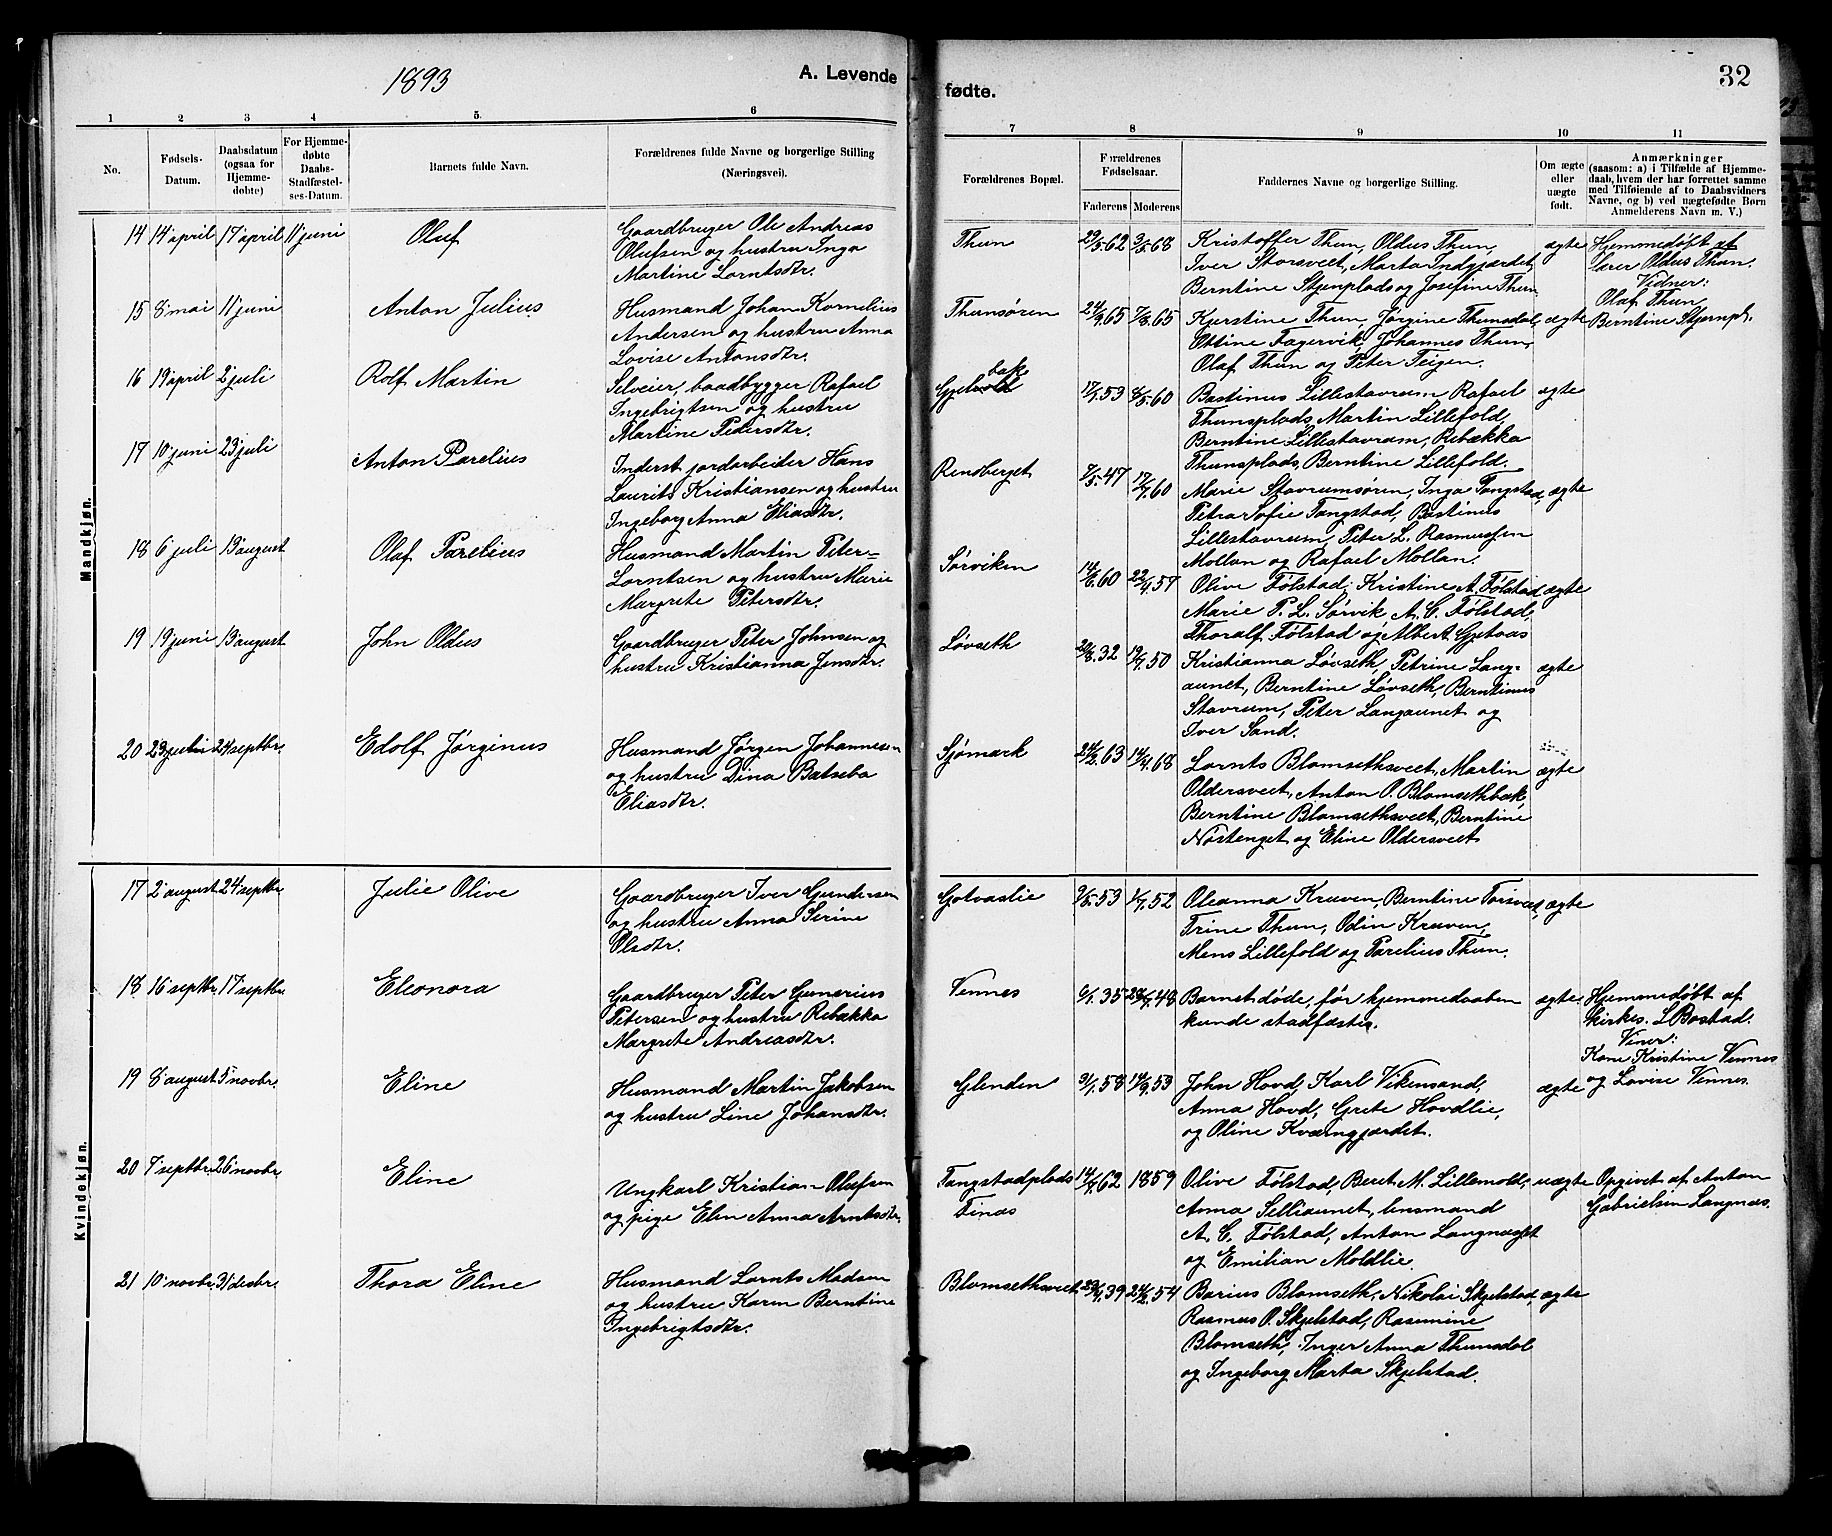 1893
A. Levende
fødte.
32
1 2 3 4 5. 6
7 8 9 10 11
No.
Fødsels-
Datum.
Daabsdatum
(ogsaa for
Hjemme-
døbte)
For Hjemme-
døbte
Daabs-
Stadfæstel-
ses-Datum.
Barnets fulde Navn.
Forældrenes fulde Navne og borgerlige Stilling
(Næringsvei).
Forældrenes Bopæl.
Forældrenes
Fødselsaar.
Faderens Moderens
Faddernes Navne og borgerlige Stilling.
Om ægte
eller
uægte
født.
Anmærkninger
(saasom: a) i Tilfælde af Hjemme-
daab, hvem der har forrettet samme
med Tilføiende af to Daabsvidners
Navne, og b) ved uægtefødte Børn
Anmelderens Navn m. V.)
Mandkjøn.
14 14 april 17 april 11 juni
Oluf
Gaardbruger Ole Andreas
Olufsen og hustru Inga
Martine Lorntsdtr.
Thun
29/5.62 3/5.68
Kristoffer Thun, Oldus Thun,
Iver Storsveet, Marta Indgjærdet,
Berntine Stjenplads og Josefine Thun
ægte
Hjemmedøbt af
lærer Oldus Thun.
Vidner:
Olaf Thun
Berntine Stjernpl.
15 8 mai 11 juni
Anton Julius
Husmand Johan Kornelius
Andersen og hustru Anna
Lovise Antonsdtr.
Thunsøren
24/9.65 7/8.65
Kjerstine Thun, Jørgine Thunsdal,
Ottine Fagervik, Johannes Thun,
Olaf Thun og Peter Teigen.
ægte
16 19 april 2 juli
Rolf Martin
Selveier, baadbygger Rafael
Ingebrigtsen og hustru
Martine Pedersdtr.
bak
Gjelvold
17/1.53 4/5.60
Bastinus Lillestavrum Rafael
Thunsplads, Martin Lillefold,
Berntine Lillestavrum, Rebækka
Thunsplads, Berntine Lillefold.
ægte
17 10 juni 23 juli
Anton Parelius
Inderst, jordarbeider Hans
Laurits Kristiansen og hustru
Ingeborg Anna Eliasdtr.
Rendberget
7/5.47 17/7.60
Marie Stavrumsøren, Inga Tangstad,
Petra Sofie Tangstad, Bastinus
Lillestavrum, Peter L. Rasmussen
Mollan og Rafael Mollan.
ægte
18 6 juli 13 august
Olaf Parelius
Husmand Martin Peter=
Lorntsen og hustru Marie
Margrete Petersdtr.
Sørviken
14/6.60 22/4.57
Olive Følstad, Kristine A. Følstad
Marie P. L. Sørvik, A. C. Følstad,
Thoralf Følstad og Albert Gjetaas
ægte
19 19 juni 13 august
John Oldus
Gaardbruger Peter Johnsen og
hustru Kristianna Jensdtr.
Løvseth
20/8.32 19/7.50
Kristianna Løvseth, Petrine Lang-
aunet, Berntine Løvseth, Berntinus
Stavrum, Peter Langaunet og
Iver Sand.
ægte
20 23 juli 24 septbr.
Edolf Jørginus
Husmand Jørgen Johannesen
og hustru Dina Batseba
Eliasdtr.
Sjømark
24/2.63 14/4.68
Lornts Blomsethsveet, Martin
Oldersveet, Anton O. Blomsethbak,
Berntine Blomsethsveet, Berntine
Nostenget og Eline Oldersveet
ægte
Kvindekjøn.
17 2 august 24 septbr.
Julie Olive
Gaardbruger Iver Gundersen
og hustru Anna Serine
Olsdtr.
Gotvaslie
9/5.53 1/7.52
Oleanna Kruven, Berntine Torsveet,
Trine Thun, Odin Kruven,
Mens Lillefold og Parelius Thun.
ægte
18 16 septbr. 17 septbr.
Eleonora
Gaardbruger Peter Gunerius
Petersen og hustru Rebækka
Margrete Andreasdtr.
Vennes
6/1.35 28/7.48
Barnet døde, før hjemmedaaben
kunde stadfæstes.
ægte
Hjemmedøbt af
kirkes. L Bostad.
Viner:
Kone Kristine Vennes
og Lovise Vennes.
19 8 august 5 novbr.
Eline
Husmand Martin Jakobsen
og hustru Line Johansdtr.
Glenden
9/1.58 14/9.53
John Hovd, Karl Vikensand,
Anna Hovd, Grete Hovdlie,
og Oline Kværngjærdet.
ægte
20 7 septbr. 26 novbr.
Eline
Ungkarl Kristian Olufsen
og pige Elen Anna Arntsdtr.
Tangstadplads
Finæs
14/7.62 1859
Olive Følstad, Beret M. Lillemold,
Anna Selliaunet, lensmand
A. C. Følstad, Anton Langnæset
og Emilian Moldlie.
uægte
Opgivet af Anton
Gabrielsen Langnæs.
21 10 novbr. 31 decbr.
Thora Eline
Husmand Lornts Madsen
og hustru Karen Berntine
Ingebrigtsdtr.
Blomsethsveet
23/4.39 24/2.54
Barius Blomseth, Nikolai Skjelstad,
Rasmus O. Skjelstad, Rasmine
Blomseth, Inger Anna Thunsdal
og Ingeborg Marta Skjelstad.
ægte